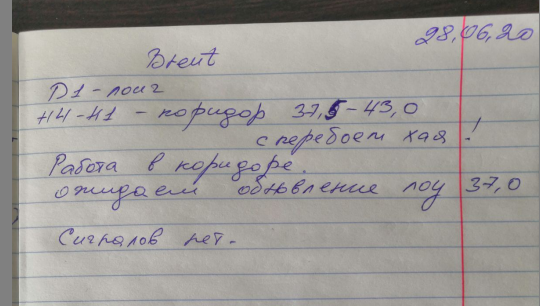 28,06,20
Brent
D1-лонг
H4-H1 - коридор 37,5-43,0
с перебоем хая!
Работа в коридоре.
ожидаем обновление лоу 37,0
Сигналов нет.